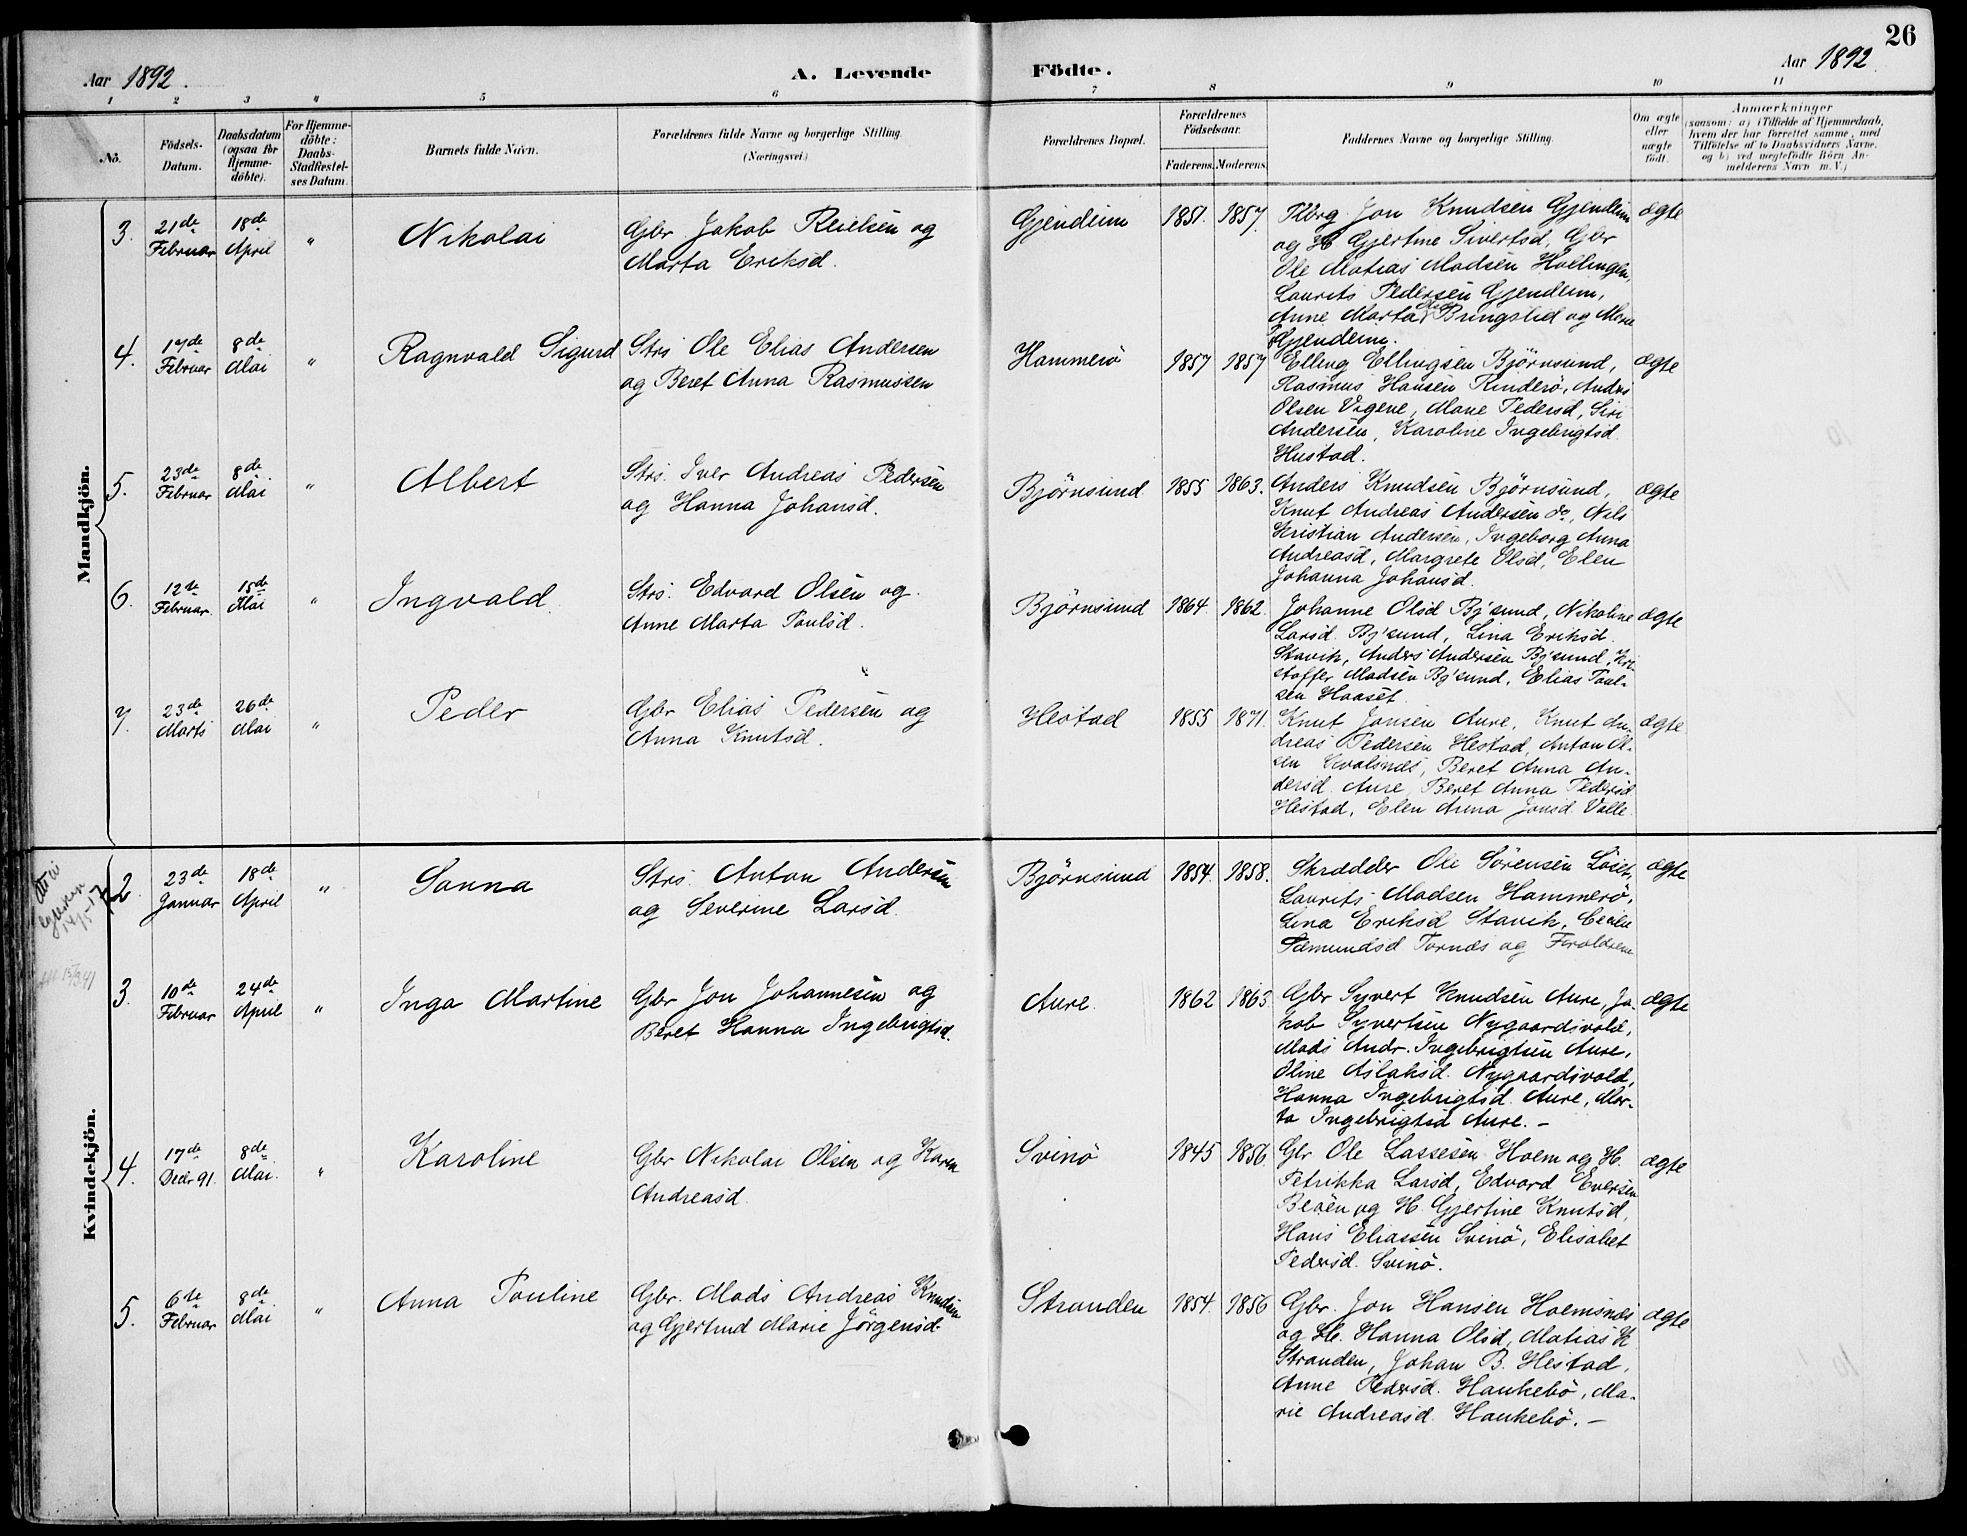 26
Aar 1892
A. Levende
Födte.
Aar 1892
1 2 3 4 5 6 7 8 9 10 11
No.
Födsels-
Datum.
Daabsdatum
(ogsaa for
Hjemme-
döbte).
For Hjemme-
döbte:
Daabs-
Stadfæstel-
ses Datum.
Barnets fulde Navn.
Forældrenes fulde Navne og borgerlige Stilling
(Næringsvei)
Forældrenes Bopæl.
Forældrenes
Födselsaar.
Faderens. Moderens.
Faddernes Navne og borgerlige Stilling.
Om ægte
eller
uægte
födt.
Anmærkninger
(saasom: a) i Tilfælde af Hjemmedaab,
hvem der har forrettet samme, med
Tilföielse af to Daabsvidners Navne,
og b) ved uægtefödte Börn An-
melderens Navn m. V.)
Mandkjön.
3.
21de
Februar
18de
April
"
Nikolai
Gbr Jakob Reielsen og
Marta Eriksd.
Gjendem
1851. 1857.
Jon Knudsen Gjendem
og H Gjertine Sivertsd, Gbr
Ole Matias Madsen Hollingen,
Laurits Pedersen Gjendem,
Anne Marta Bringslid og
Gjendem.
ægte
4.
17de
Februar
8de
Mai
"
Ragnvald Sigurd
Strs Ole Elias Andersen
og Beret Anna Rasmussen
Hammerö
1857 1857
Elling Ellingsen Björnsund,
Rasmus Hansen Rinderö, Andrs
Olsen Vegene, Marie Pedersd, Siri
Andersen, Karoline Ingebrigtsd
Hustad.
ægte
5.
23de
Februar
8de
Mai
"
Albert
Strs. Iver Andreas Pedersen
og Hanna Johansd.
Björnsund
1855 1863.
Anders Knudsen Björnsund,
Knut Andreas Andersen do, Nils
Kristian Andersen, Ingeborg Anna
Andreasd, Margrete Olsd, Elen
Johanna Johansd.
ægte
6.
12te
Februar
15de
Mai
"
Ingvald
Strs. Edvard Olsen og
Anne Marta Poulsd.
Björnsund
1864. 1862
Johanne Olsd Bj'sund, Nikoline
Larsd. Bj'sund, Lina Eriksd.
Stavik, Anders Andersen Bj'sund, Kri-
stoffer Madsen Bj'sund, Elias Poul-
sen Haaset.
ægte
7.
23de
Marts
26de
Mai
"
Peder
Gbr Elias Pedersen og
Anna Knutsd.
Hestad
1855 1871.
Knut Jonsen Aure, Knut An-
dreas Pedersen Hestad, Anton Ol-
sen Kvalsnæs, Beret Anna An-
dersd. Aure, Beret Anna Pedersd
Hestad, Elen Anna Jonsd. Valle.
ægte
Kvindekjön.
2.
23de
Januar
18de
April
"
Sanna
Strs. Anton Andersen
og Severine Larsd.
Björnsund
1854. 1858.
Skrædder Ole Sörensen Löset,
Laurits Madsen Hammerö,
Lina Eriksd Stavik, Cecilie
Sæmundsd Tornæs og Forældrene
ægte
3.
10de
Februar
24de
April
"
Inga Martine
Gbr Jon Johannesen og
Beret Hanna Ingebrigtsd.
Aure.
1862 1863
Gbr Syvert Knudsen Aure, Ja-
kob Syvertsen Nygaardsvold,
Mads Andr. Ingebrigtsen Aure,
Oline Aslaksd. Nygaardsvold,
Hanna Ingebrigtsd. Aure, Mar-
ta Ingebrigtsd Aure. –
ægte
4.
17de
Decbr 91.
8de
Mai.
"
Karoline
Gbr Nikolai Olsen og Karen
Andreasd.
Svinö
1845 1856
Gbr Ole Lassesen Hoem og H.
Petrikka Larsd, Edvard Eversen
Beöen og H. Gjertine Knutsd,
Hans Eliassen Svinö, Elisabet
Pedersd. Svinö.
ægte
5.
6te
Februar
8de
Mai
"
Anna Pouline
Gbr. Mads Andreas Knudsen
og Gjertrud Marie Jörgensd.
Stranden
1854. 1856
Gbr. Jon Hansen Hoemsnæs
og H. Hanna Olsd, Matias K
Stranden, Johan B. Hestad,
Anne Pedersd. Haukebö, Ma-
rie Andreasd. Haukebö. –
ægte